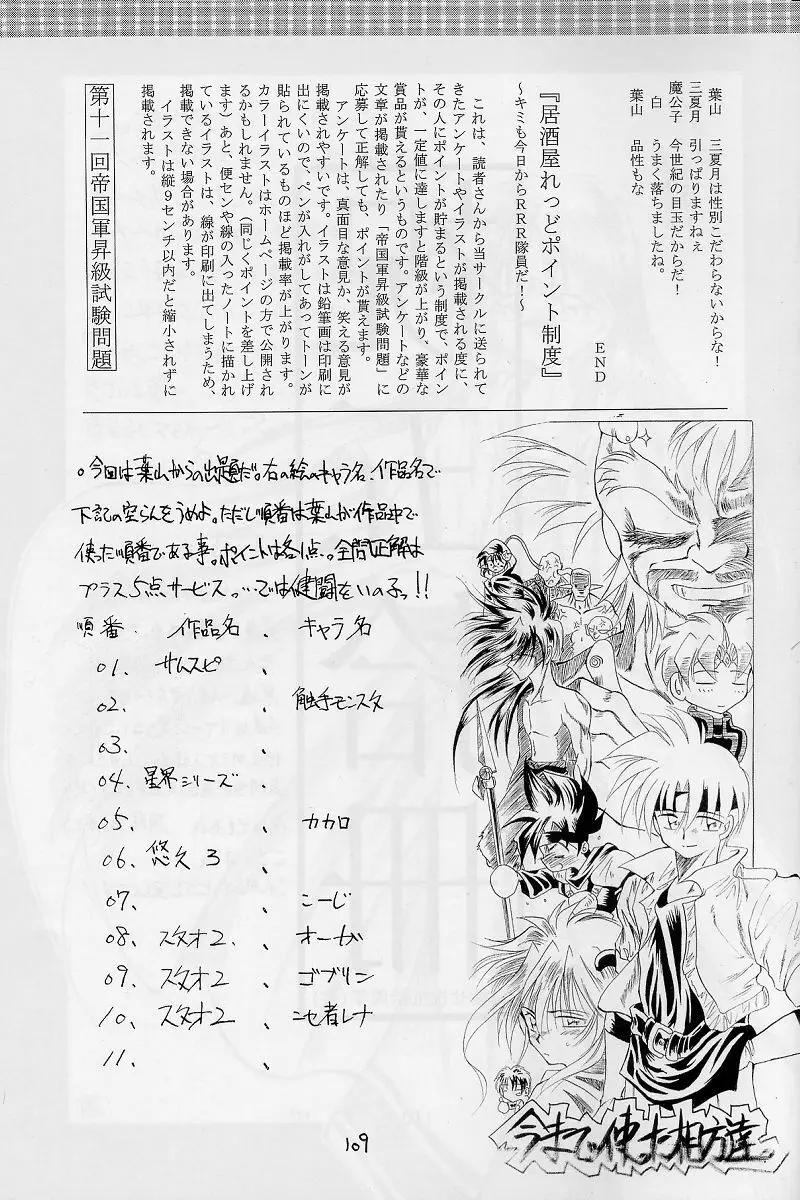 葉山　三夏月は性別こだわらないからな!
三夏月　引っぱりますねぇ
魔公子　今世紀の目玉だからだ!
白　うまく落ちましたね。
葉山　品性もな
END
『居酒屋れっどポイント制度』
～キミも今日からRRR隊員だ!～
これは、読者さんから当サークルに送られて
きたアンケートやイラストが掲載される度に、
その人にポイントが貯まるという制度で、ポイン
トが、一定値に達しますと階級が上がり、豪華な
賞品が貰えるというものです。アンケートなどの
文章が掲載されたり「帝国軍昇級試験問題」に
応募して正解しても、ポイントが貰えます。
アンケートは、真面目な意見か、笑える意見が
掲載されやすいです。イラストは鉛筆画は印刷に
出にくいので、ペンが入れがしてあってトーンが
貼られているものほど掲載率が上がります。
カラーイラストはホームページの方で公開され
るかもしれません。（同じくポイントを差し上げ
ます）あと、便センや線の入ったノートに描かれ
ているイラストは、線が印刷に出てしまうため、
掲載できない場合があります。
イラストは縦9センチ以内だと縮小されずに
掲載されます。
第十一回帝国軍昇級試験問題
。今回は葉山からの出題だ。右の絵のキャラ名、作品名で
下記の空らんをうめよ。ただし順番は葉山が作品中で
使った順番である事。ポイントは各1点。全問正解は
プラス5点サービス。…では健闘をいのるっ!!
順番、作品名、キャラ名
01. サムスピ、
02. 、触手モンスタ
03. 、
04. 星界シリーズ、
05. 、カカロ
06. 悠久3、
07. 、こーじ
08. スタオ2、オーガ
09. スタオ2、ゴブリン
10. スタオ2、ニセ者レナ
11. 、
今まで使った相方達
109